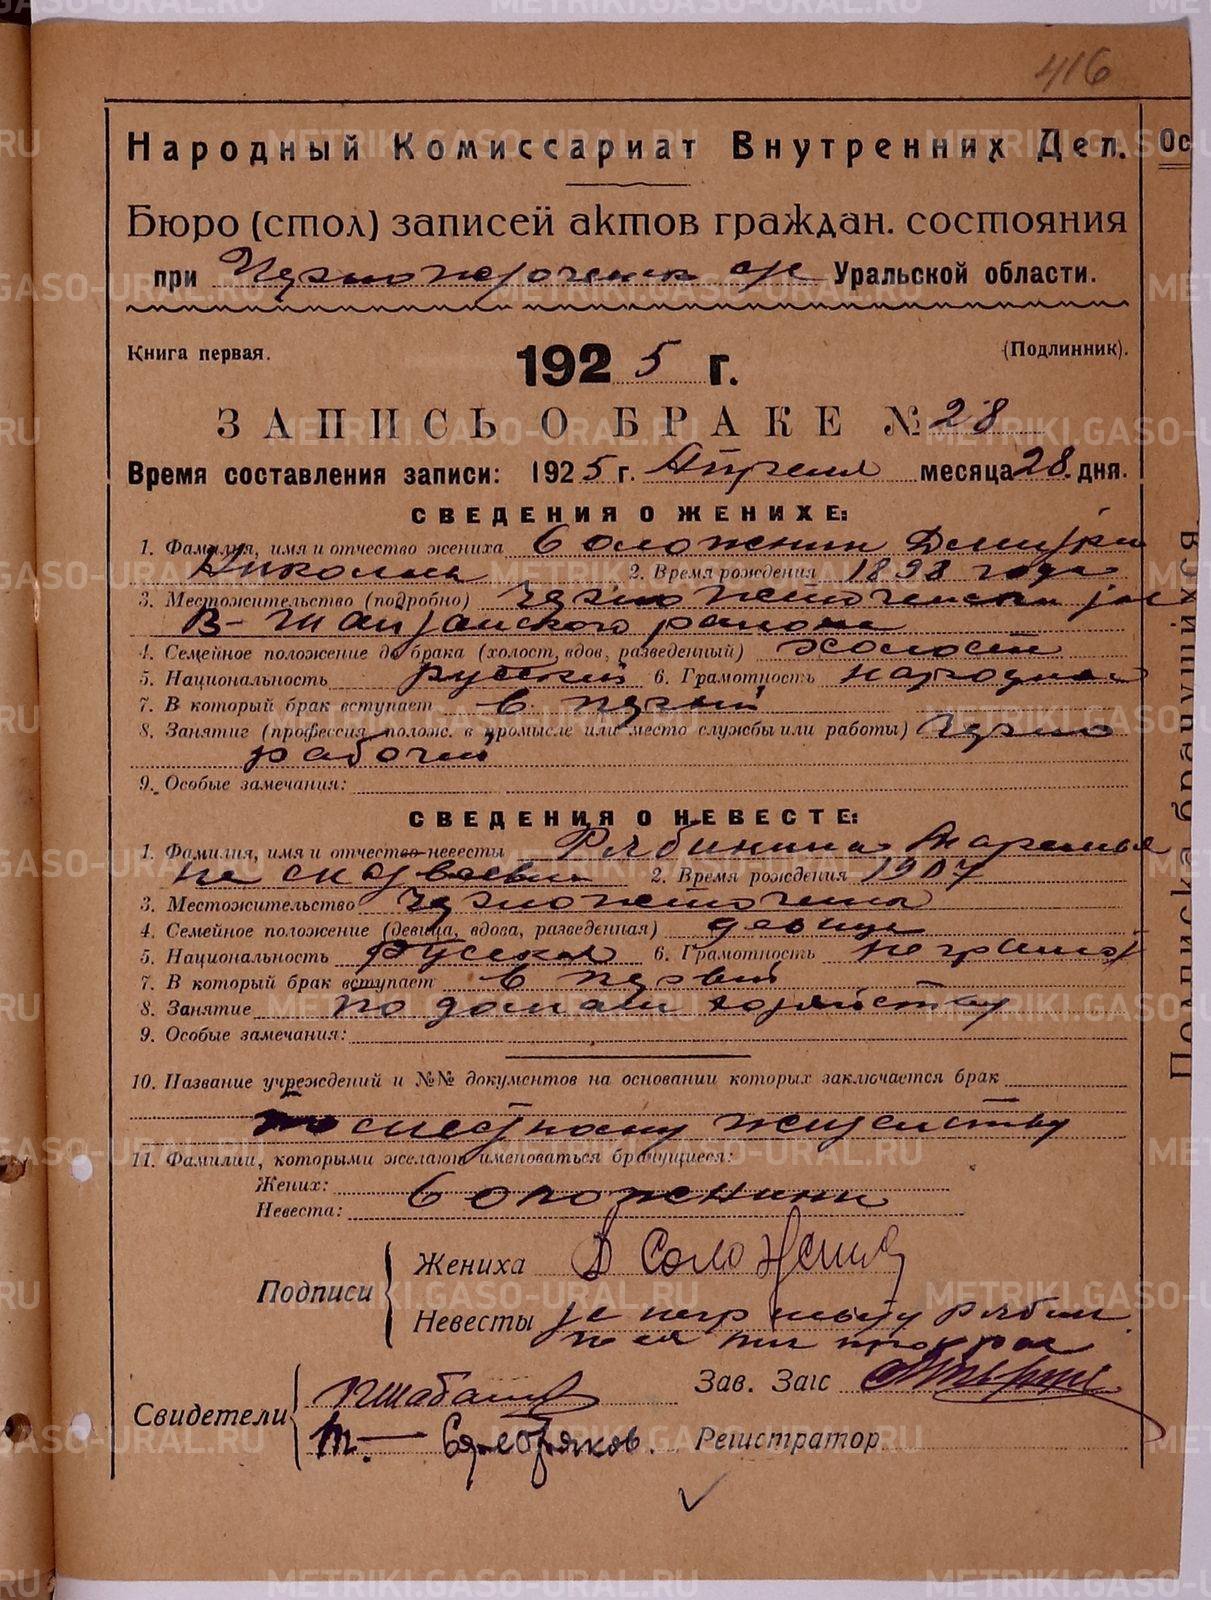 416
Народный Комиссариат Внутренних Дел.
Ос
Бюро (стол) записей актов граждан. состояния
при Уральской области.
Книга первая. (Подлинник).
1925 г.
ЗАПИСЬ О БРАКЕ № 28
Время составления записи: 1925 г. Апреля месяца 28 дня.
СВЕДЕНИЯ О ЖЕНИХЕ:
1. Фамилия, имя и отчество жениха Соложнин Дмитри
Николаев 2. Время рождения 1898 года
3. Местожительство (подробно)
В-Тагильского района
4. Семейное положение до брака (холост, вдов, разведенный) холост
5. Национальность русский 6. Грамотность народная
7. В который брак вступает в первый
8. Занятие (профессия, полож. в промысле или место службы или работы) черно
рабочий
9. Особые замечания:
СВЕДЕНИЯ О НЕВЕСТЕ:
1. Фамилия, имя и отчество невесты Рябинина
2. Время рождения 1907
3. Местожительство
4. Семейное положение (девица, вдова, разведенная) девица
5. Национальность Русская 6. Грамотность неграмот
7. В который брак вступает в первый
8. Занятие по домаш хозяйству
9. Особые замечания:
10. Название учреждений и №№ документов на основании которых заключается брак
по местному жительству
11. Фамилии, которыми желают именоваться брачущиеся:
Жених:
Соложнины
Невеста:
Подписи
Жениха Д Соложнин
Невесты
Зав. Загс
Свидетели
Серебряков. Регистратор
Подписка брачущихся
METRIKI.GASO-URAL.RU